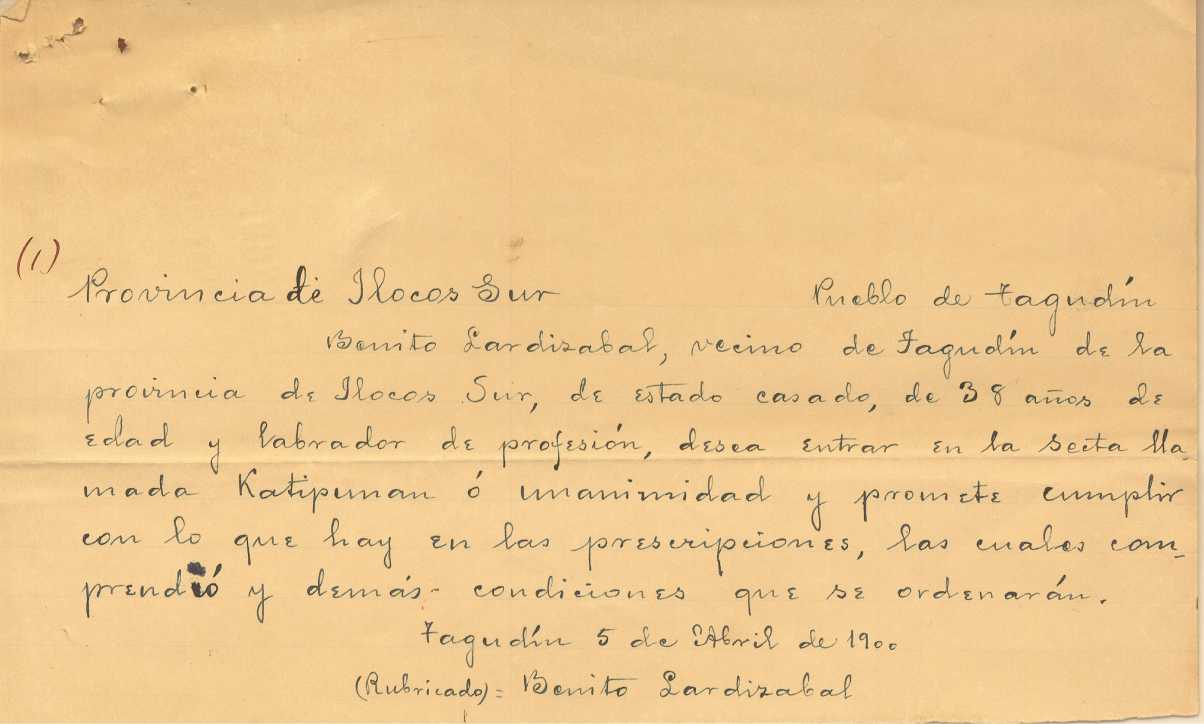 (1)
Provincia de Ilocos Sur Pueblo de Tagudín
Benito Lardizabal, vecino de Tagudín de la
provincia de Ilocos Sur, de estado casado, de 38 años de
edad y labrador de profesión, desea entrar en la secta lla-
mada Katipunan ó unanimidad y promete cumplir
con lo que hay en las prescripciones, las cuales com-
prendió y demás condiciones que se ordenarán.
Tagudín 5 de Abril de 1900
(Rubricado)= Benito Lardizabal